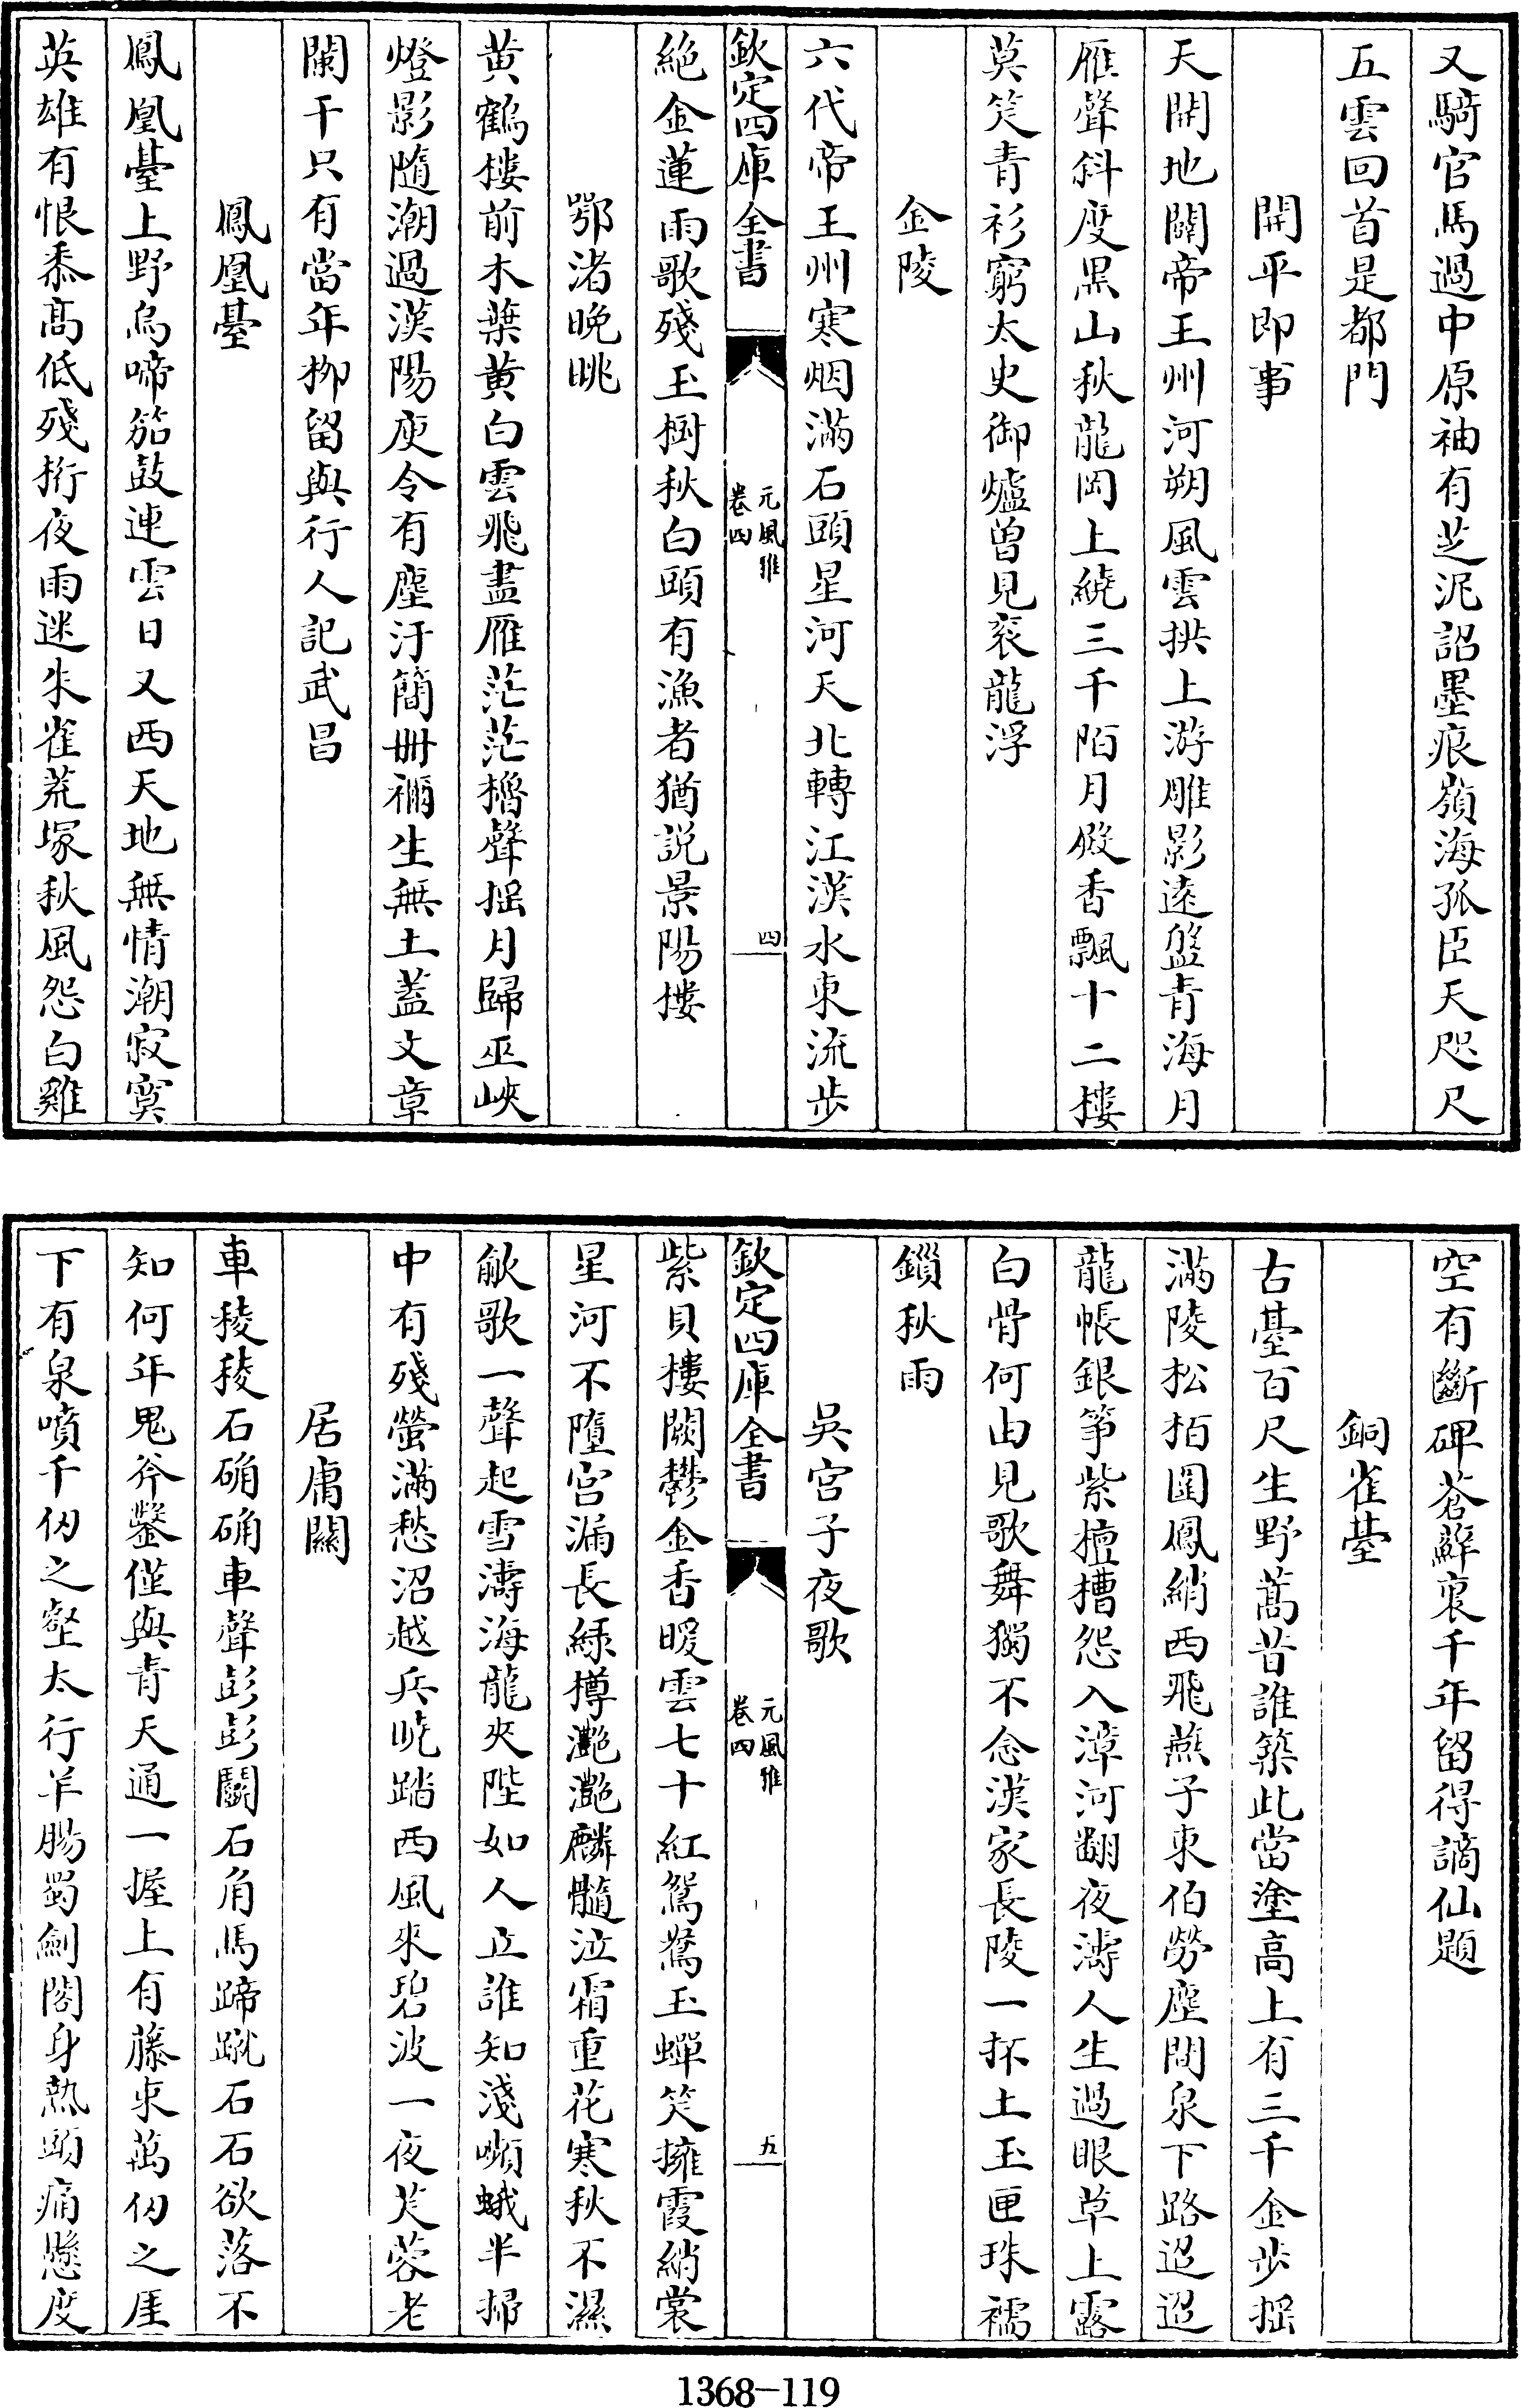 又騎官馬過中原袖有芝泥詔墨痕嶺海孤臣天咫尺
五雲回首是都門
開平即事
天開地闢帝王州河朔風雲拱上游雕影遠盤青海月
雁聲斜度黒山秋龍岡上繞三千陌月殿香飄十二樓
莫笑青衫窮太史御爐曾見衮龍浮
金陵
六代帝王州寒烟滿石頭星河天北轉江漢水東流步
欽定四庫全書
元風雅
卷四
四
絶金蓮雨歌殘玉樹秋白頭有漁者猶説景陽樓
鄂渚晚眺
黄鶴樓前木葉黄白雲飛盡雁茫茫櫓聲揺月歸巫峽
燈影隨潮過漢陽庾令有塵汙簡冊禰生無土蓋文章
闌干只有當年柳留與行人記武昌
鳳凰臺
鳳凰臺上野烏啼笳鼓連雲日又西天地無情潮寂寞
英雄有恨黍髙低殘桁夜雨迷朱雀荒塚秋風怨白雞
空有斷碑蒼蘚裏千年留得謫仙題
銅雀臺
古臺百尺生野蒿昔誰築此當塗高上有三千金步揺
滿陵松栢圍鳳綃西飛燕子東伯勞塵閒泉下路迢迢
龍帳銀筝紫檀槽怨入漳河翻夜濤人生過眼草上露
白骨何由見歌舞獨不念漢家長陵一抔土玉匣珠襦
鎻秋雨
吳宫子夜歌
欽定四庫全書
元風雅
卷四
五
紫貝樓闕鬱金香暖雲七十紅鴛鴦玉蟬笑擁霞綃裳
星河不墮宫漏長緑樽灧灧麟髓泣霜重花寒秋不濕
歈歌一聲起雪濤海龍夾陛如人立誰知淺嚬蛾半掃
中有殘螢滿愁沼越兵曉踏西風來碧波一夜芙蓉老
居庸關
車稜稜石确确車聲彭彭鬭石角馬蹄蹴石石欲落不
知何年鬼斧鑿僅與青天通一握上有藤束萬仞之厓
下有泉噴千仞之壑太行羊腸蜀劍閣身熱頭痛懸度
1368-119